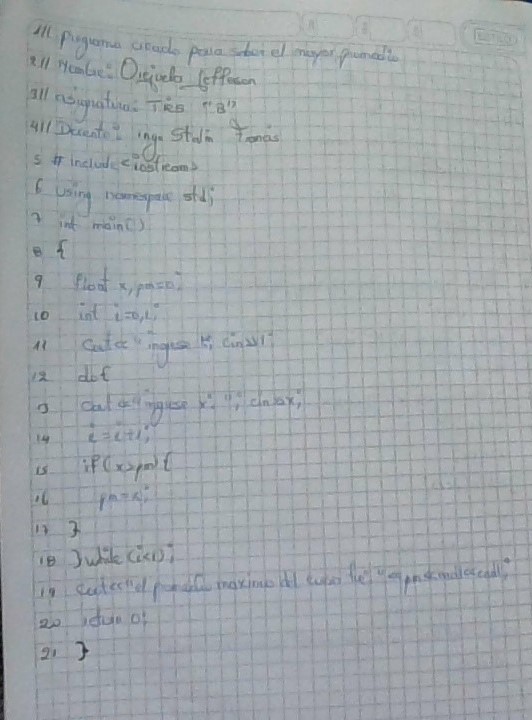 1// programa creado para saber el mayor promedio
2// Nombre: Orejuela Jefferson
3// asignatura: TICS "B"
4// Docente: ing. Stalin
5 #include<iostream>
6 using namespace std;
7 int main()
8 {
9 float x, pm=0;
10 int i=0,
11 cout<<"ingrese
12 do{
13 cout<<"ingrese x: "; cin>>x;
14 i=i+1;
15 if(x>pm){
16 pm=x;
17 }
18 }while(i<1);
19 cout<<"el promedio maximo del curso fue: "<<pm<<
20 return 0;
21 }